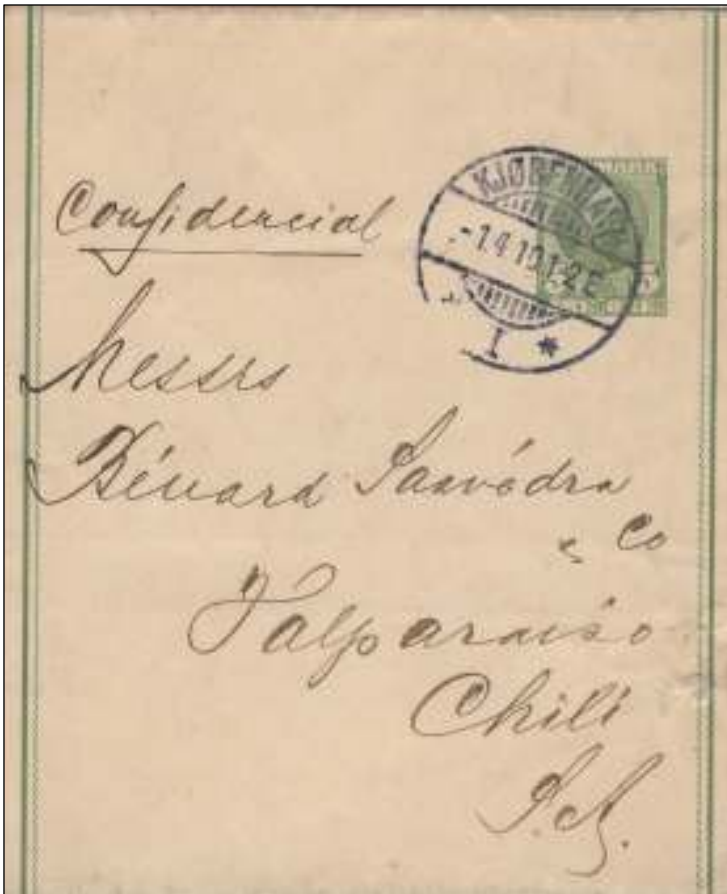 Confidencial
KJØBENHAVN
-1.4.10.1-2E
I *
5 5
Messrs
Bénard Saavédra
& Co
Valparaiso
Chili
S.A.